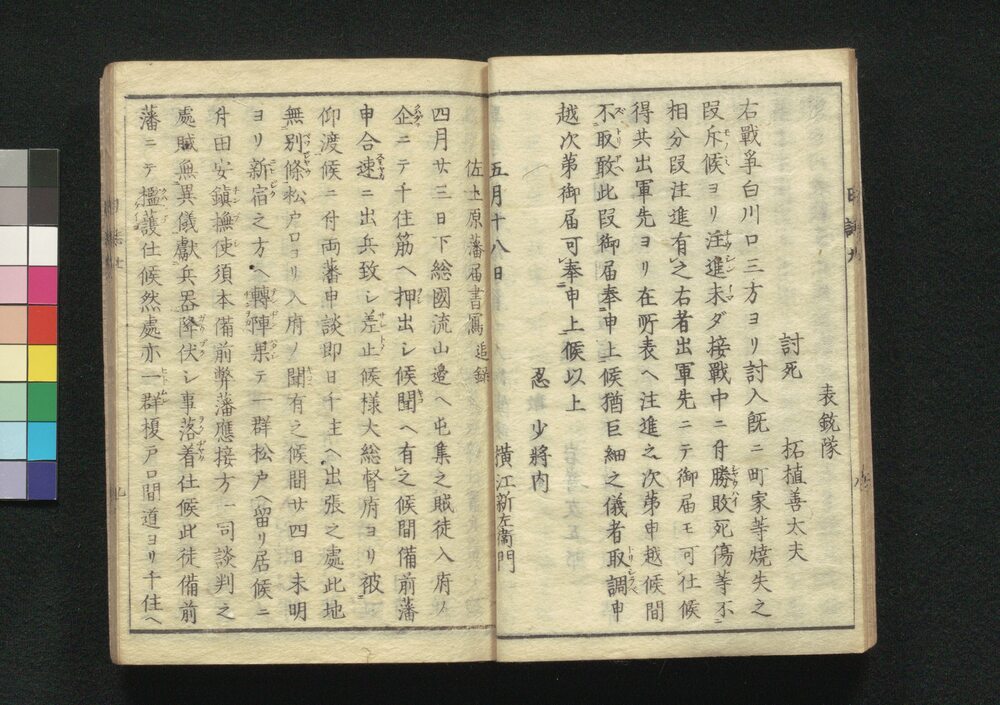 表銃隊
討死 柘植善太夫
右戰爭白川口三方ヨリ討入既ニ町家等燒失之
段斥候ヨリ注進未ダ接戰中ニ付勝敗死傷等不
相分段注進有之右者出軍先ニテ御届モ可仕候
得共出軍先ヨリ在所表ヘ注進之次第申越候間
不取敢此段御届奉申上候猶巨細之儀者取調申
越次第御届可奉申上候以上
忍少將内
五月十八日 横江新左衞門
佐土原藩届書寫 追録
四月廿三日下総國流山邊ヘ屯集之賊徒入府ノ
企ニテ千住筋ヘ押出シ候聞ヘ有之候間備前藩
申合速ニ出兵致シ差止候様大総督府ヨリ被
仰渡候ニ付両藩申談即日千主ヘ出張之處此地
無別條松戸口ヨリ入府ノ聞有之候間廿四日未明
ヨリ新宿之方ヘ轉陣果テ一群松戸ヘ留リ居候ニ
付田安鎮撫使須本備前弊藩應接方一司談判之
處賊無異儀獻兵器降伏シ事落着仕候此徒備前
藩ニテ搵護仕候然處亦一群榎戸口間道ヨリ千住ヘ